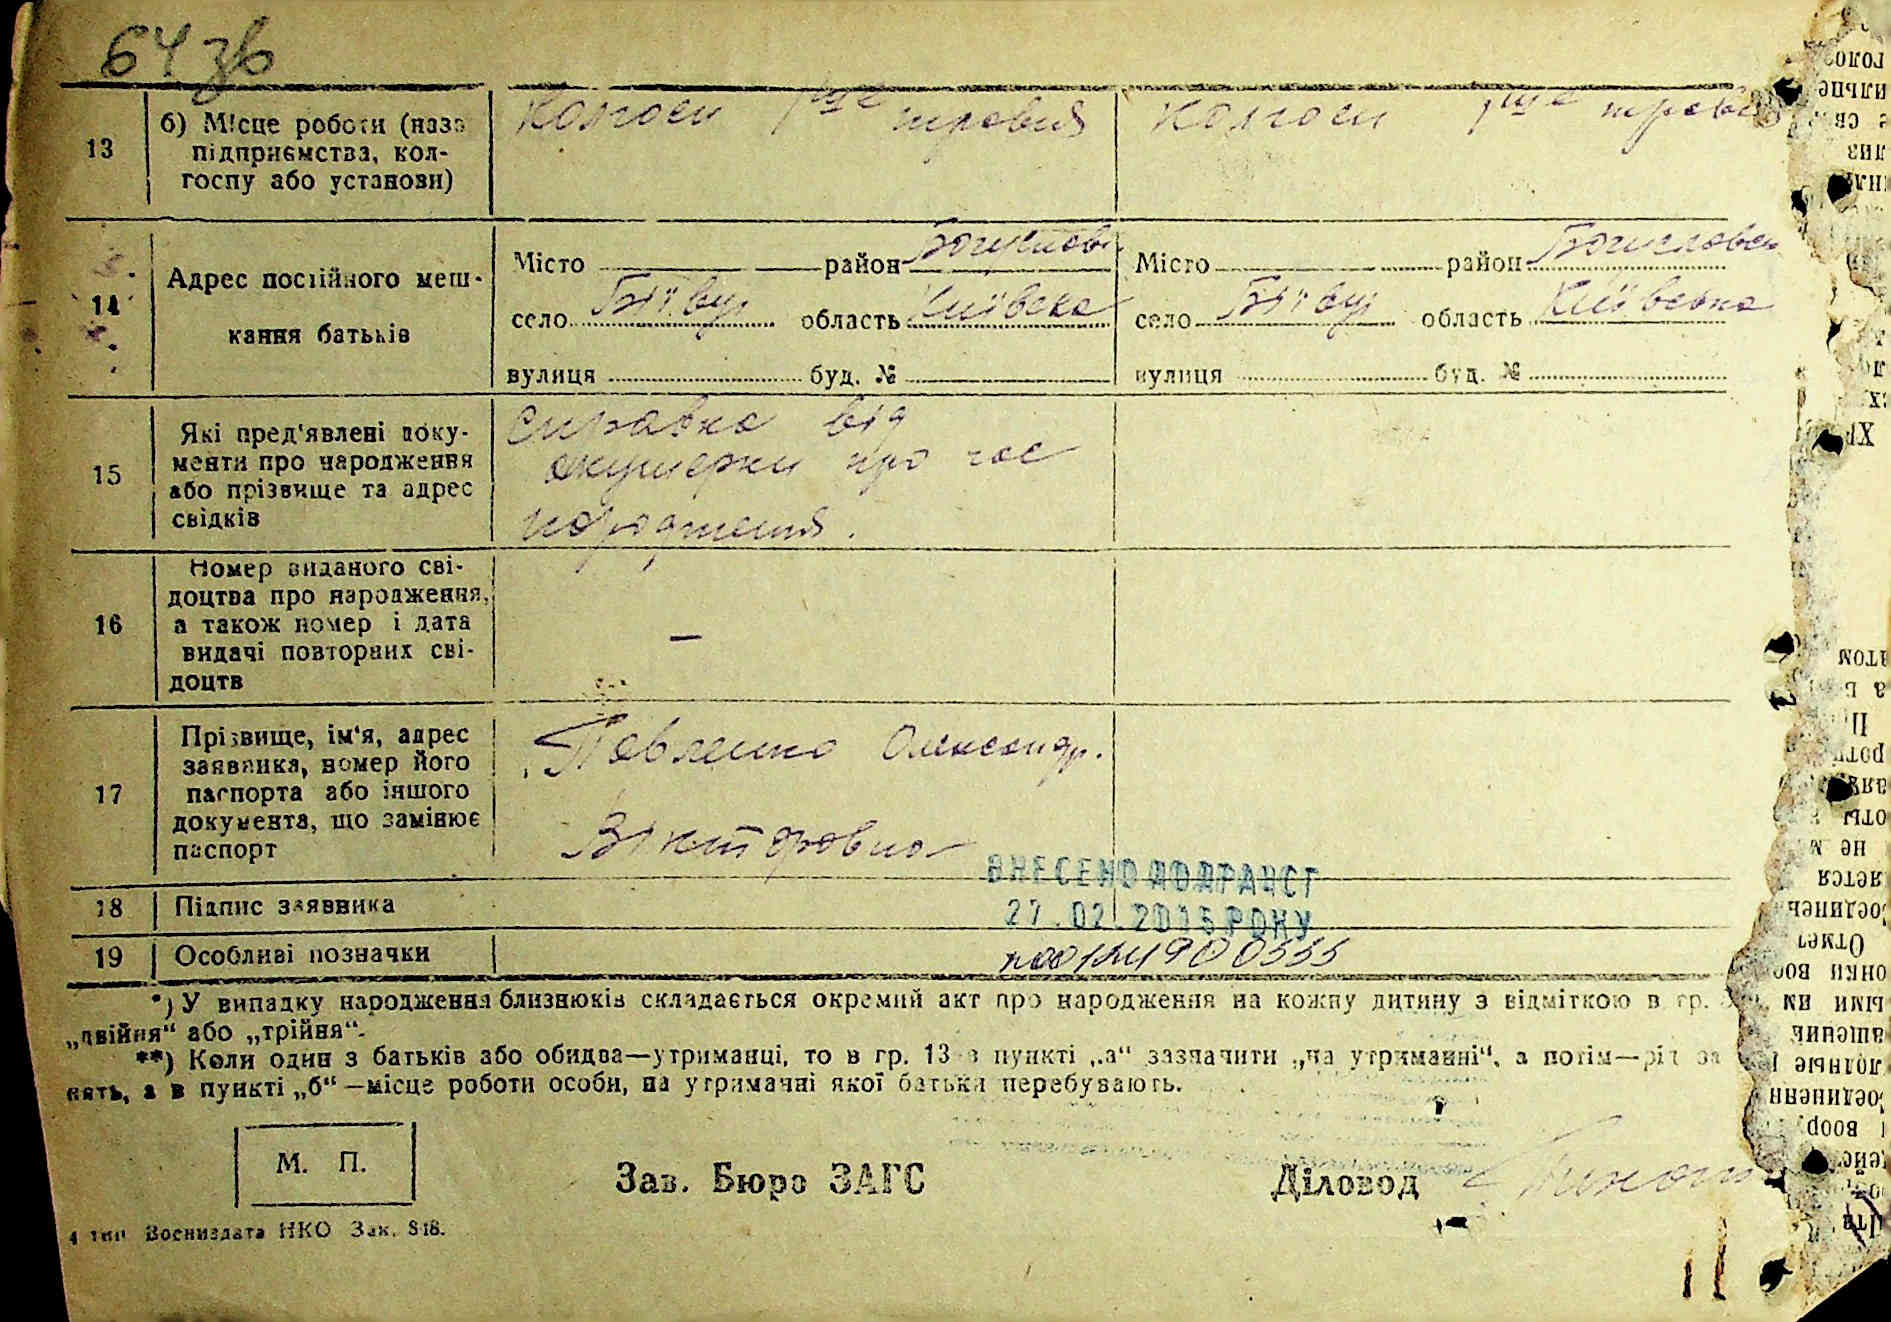 64 зв
13
б) Місце роботи (назв
підприємства, кол-
госпу або установи)
Колгосп 1ше травня
Колгосп 1ше трав
14
Адрес постійного меш-
кання батьків
Місто район Богуслав
село Бiївцi область Київська
вулиця буд. №
Місто район Богуславськ
село Бiївцi область Київська
вулиця буд. №
15
Які пред'явлені доку-
менти про народження
або прізвище та адрес
свідків
справка від
акушерки про час
народження.
16
Номер виданого сві-
доцтва про народження,
а також номер і дата
видачі повторних сві-
доцтв
—
17
Прізвище, ім'я, адрес
заявника, номер його
паспорта або іншого
документа, що замінює
паспорт
Павленко Олександр.
Вікторовна
18 Підпис заявника
ВНЕСЕНО ДО ДРАЦСГ
27.02.2015 РОКУ
19 Особливі позначки
*) У випадку народження близнюків складається окремий акт про народження на кожну дитину з відміткою в гр.
„двійня“ або „трійня“.
**) Коли один з батьків або обидва—утриманці, то в гр. 13 в пункті „а“ зазначити „на утриманні“, а потім—рід за
нять, а в пункті „б“—місце роботи особи, на утриманні якої батьки перебувають.
М. П.
Зав. Бюро ЗАГС
Діловод
4 тип Воениздата НКО Зак. 818.
11